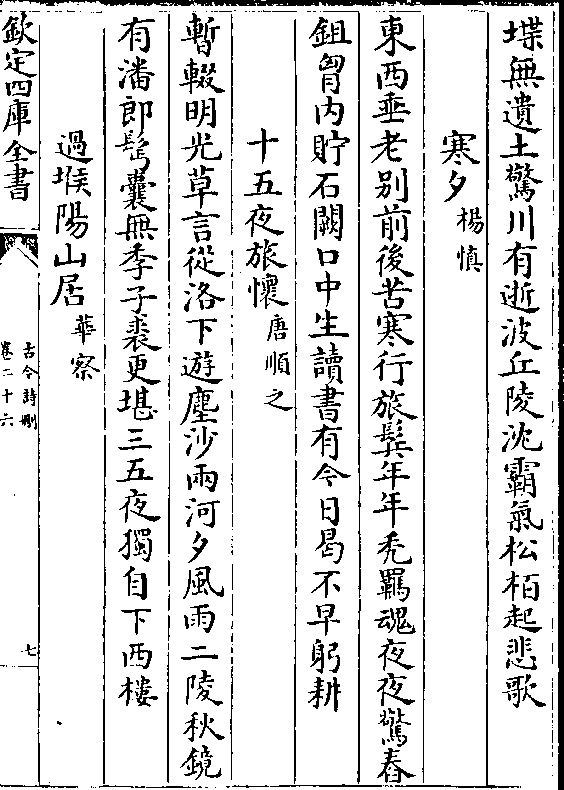 堞無遺土驚川有逝波丘陵沈霸氣松柏起悲歌
寒夕楊慎
東西垂老别前後苦寒行旅鬂年年秃羈魂夜夜驚舂
鉏胷内貯石闕口中生讀書有今日曷不早躬耕
十五夜旅懷唐順之
暫輟明光草言從洛下遊塵沙兩河夕風雨二陵秋鏡
有潘郎髩囊無季子裘更堪三五夜獨自下西樓
過堠陽山居華察
欽定四庫全書
古今詩刪
卷二十六
七